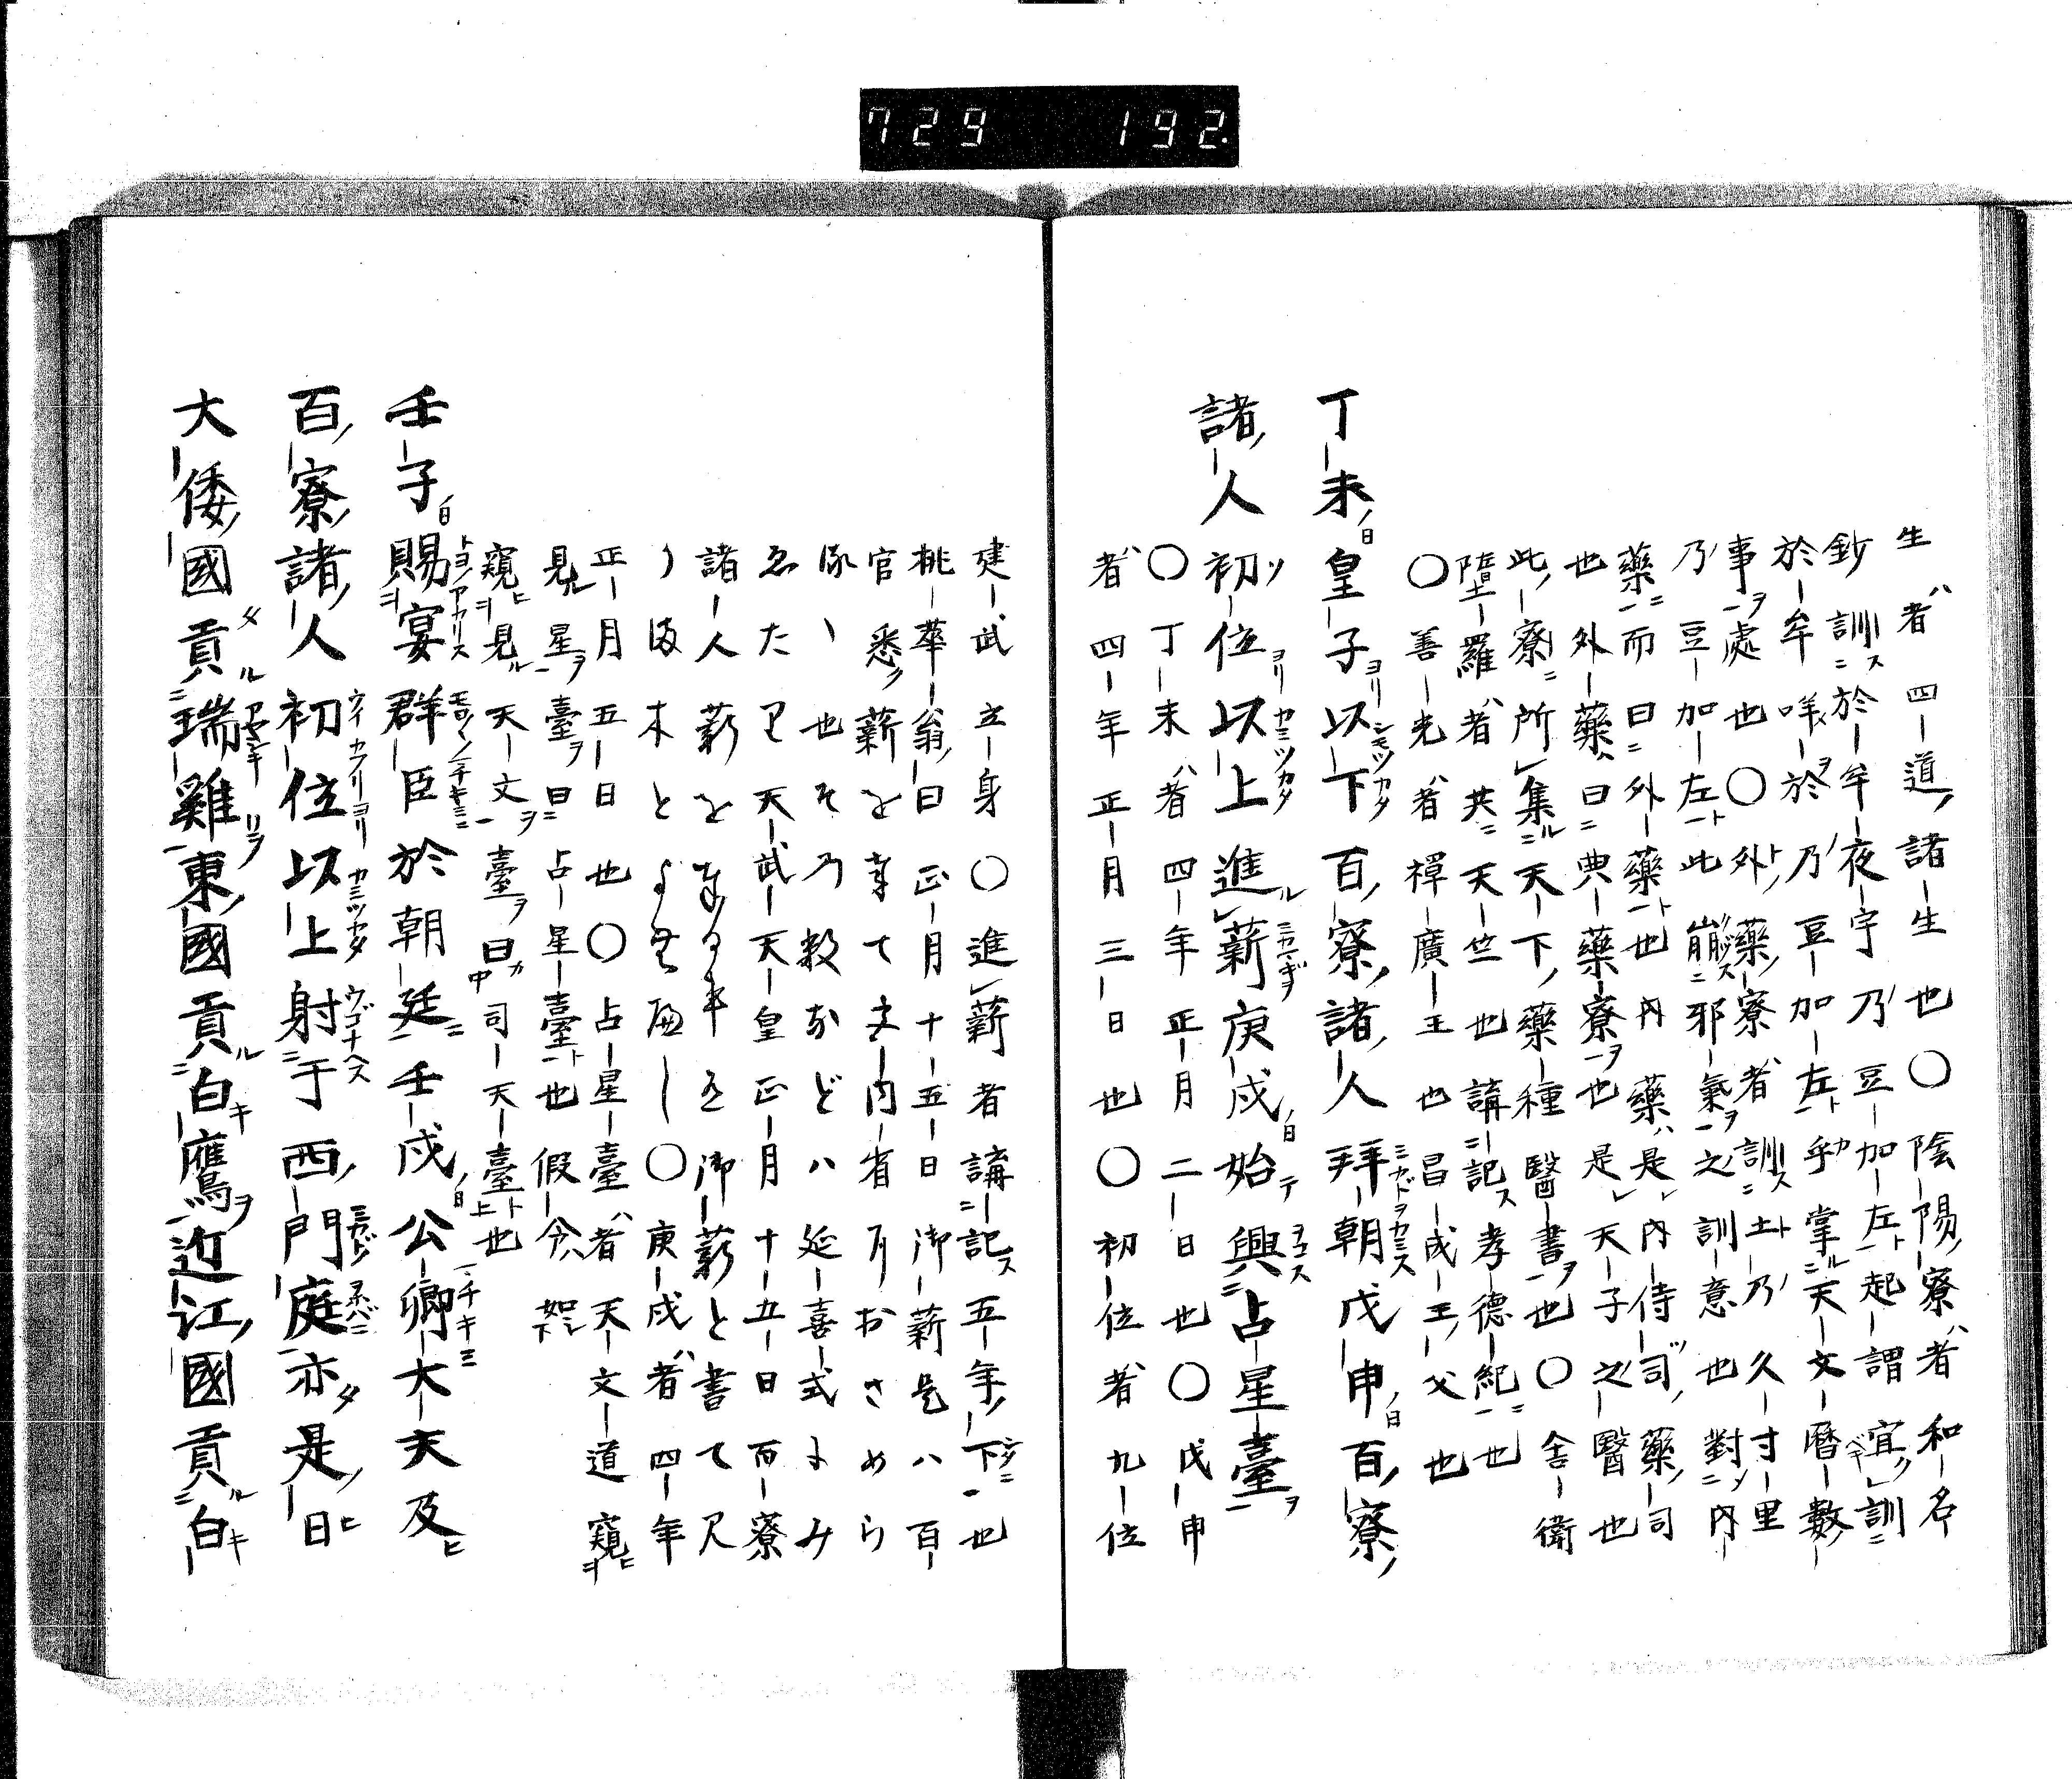 729 192.
生者四道諸生也〇陰陽寮者和名
鈔訓於牟夜宇乃豆加左起謂宜訓
於牟咩於乃豆加左乎掌天文曆數
事處也〇外藥寮者訓土乃久寸里
乃豆加左此崩邪氣之訓意也對內
藥而曰外藥也內藥是內侍司藥司
也外藥曰典藥寮也是天子之醫也
此寮所集天下藥種醫書也〇舍衛
墮羅者共天竺也講記孝德紀也
〇善光者禪廣王也昌成王父也
丁未皇子以下百寮諸人拜朝戊申百寮
諸人初位以上進薪庚戌始興占星臺
〇丁未者四年正月二日也〇戊申
者四年正月三日也〇初位者九位
建武立身〇進薪者講記五年下也
桃華翁曰正月十五日御薪是ハ百
官悉薪を奉て宮內省にておさめら
る也その數などハ延喜式にみ
ゑたり天武天皇正月十五日百寮
諸人薪を 御薪と書て
〇庚戌者四年
正月五日也〇占星臺者天文道窺
見星臺曰占星臺也假令
窺見天文臺曰司天臺也
壬子賜宴群臣於朝廷壬戌公卿大夫及
百寮諸人初位以上射于西門庭亦是日
大倭國貢瑞雞東國貢白鷹近江國貢白